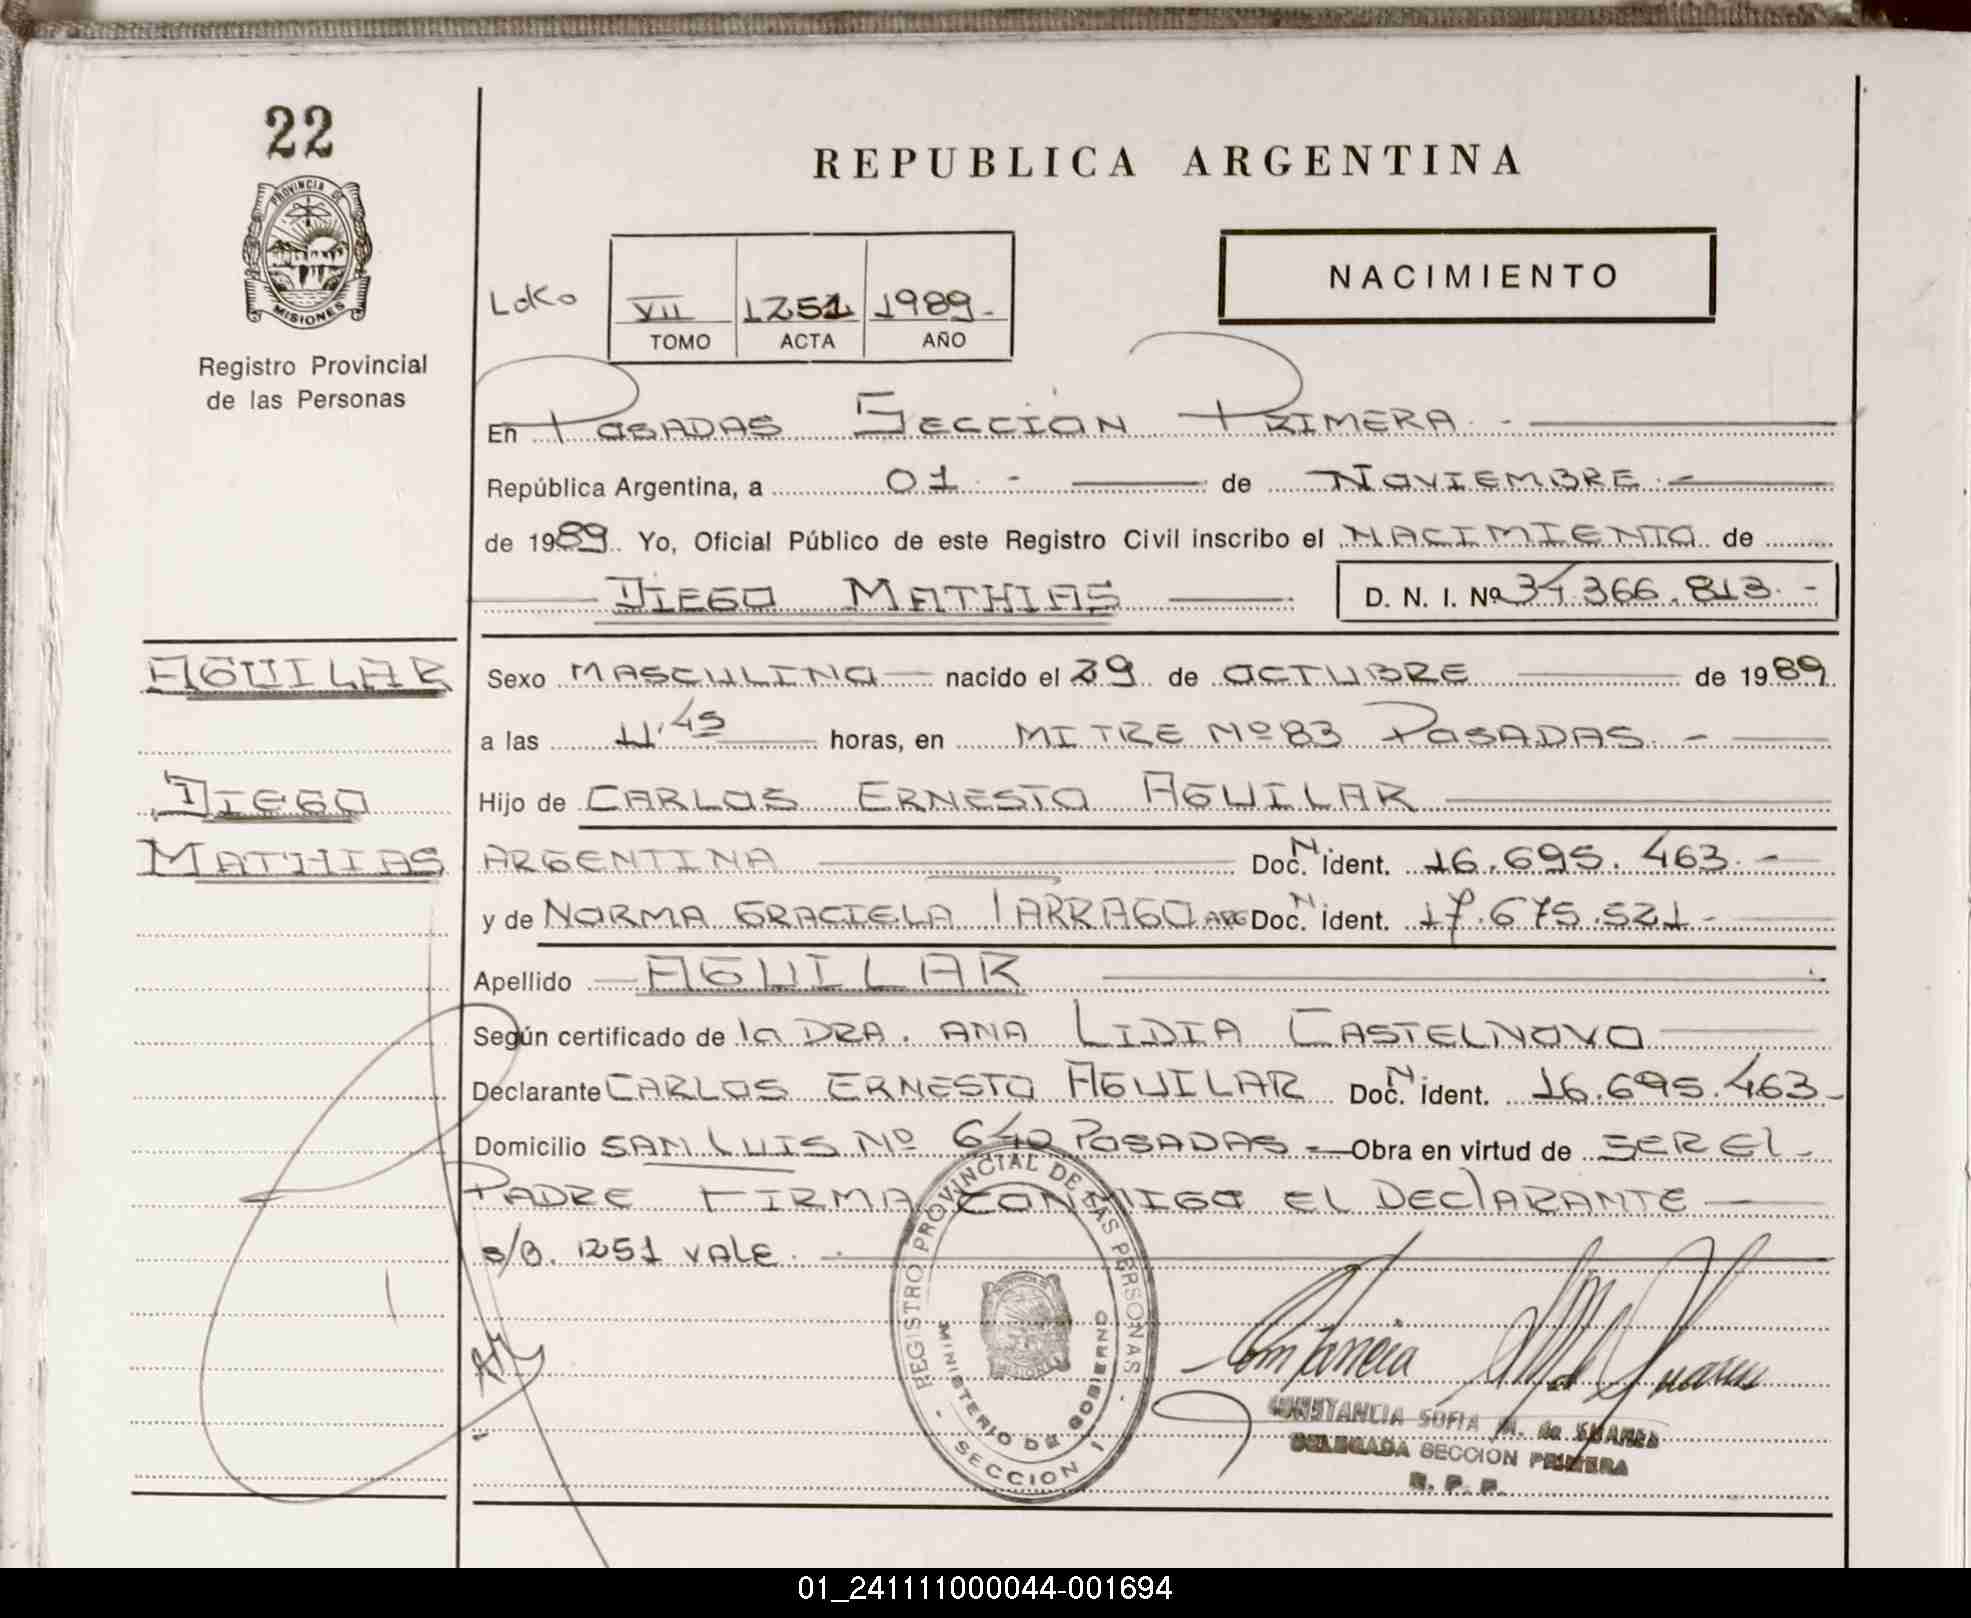 22
PROVINCIA DE
MISIONES
Registro Provincial
de las Personas
REPUBLICA ARGENTINA
NACIMIENTO
VII 1251 1989.-
TOMO ACTA AÑO
En POSADAS SECCION PRIMERA.-
República Argentina, a 01.- de NOVIEMBRE.-
de 1989. Yo, Oficial Público de este Registro Civil inscribo el NACIMIENTO de
DIEGO MATHIAS D. N. I. Nº 34.366.813.-
AGUILAR
DIEGO
MATHIAS
Sexo MASCULINO nacido el 29 de OCTUBRE de 1989.
a las 11.45 horas, en MITRE Nº 83 POSADAS.-
Hijo de CARLOS ERNESTO AGUILAR
ARGENTINA Doc. N. Ident. 16.695.463.-
y de NORMA GRACIELA TARRAGO ARG Doc. N. Ident. 17.675.521.-
Apellido AGUILAR
Según certificado de la DRA. ANA LIDIA CASTELNOVO
Declarante CARLOS ERNESTO AGUILAR Doc. N. Ident. 16.695.463-
Domicilio SAN LUIS Nº 640 POSADAS.- Obra en virtud de SER El
PADRE FIRMA CONMIGO EL DEClARANTE
s/B. 1251 VALE.
REGISTRO PROVINCIAL DE LAS PERSONAS
MINISTERIO DE GOBIERNO
SECCION I
CONSTANCIA SOFIA M. de SUAREZ
DELEGADA SECCION PRIMERA
R. P. P.
01_241111000044-001694